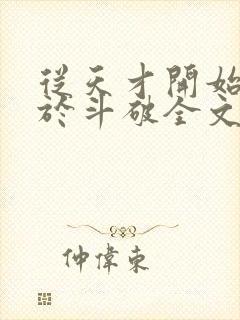 從天才開始
於斗破全文
仲偉東